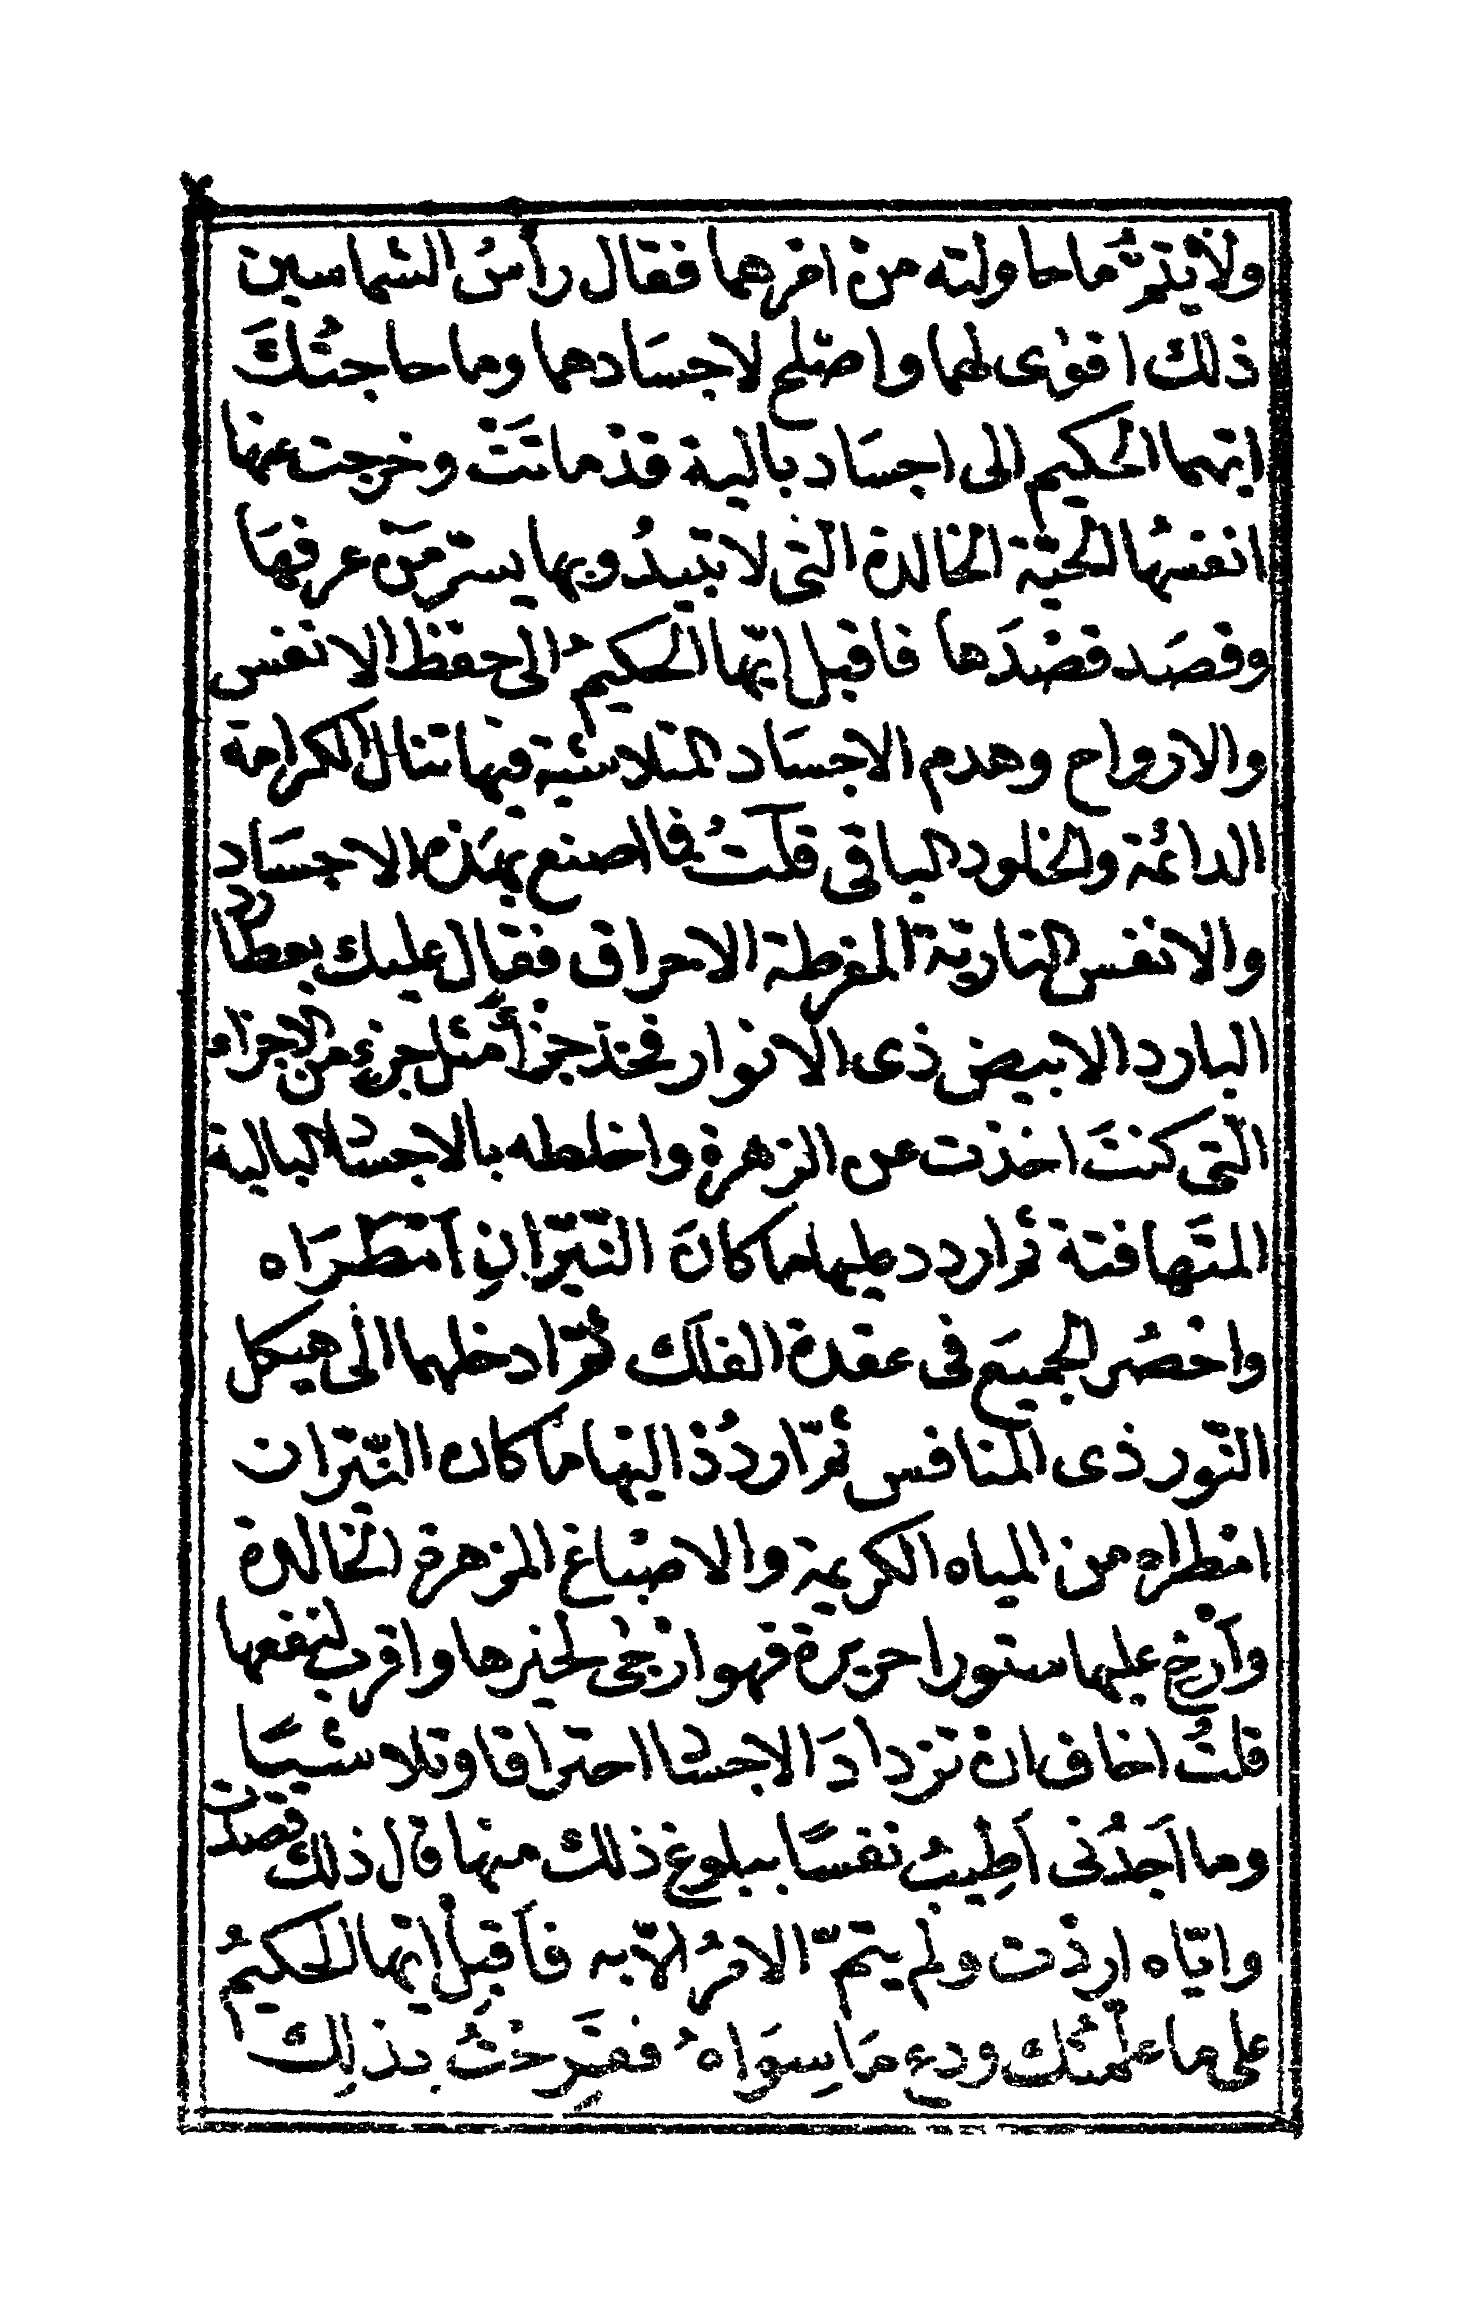 ولا يتمّ ما حاولته من امرهما فقال رأسُ الشماسين
ذلك اقوى لهما واصلح لاجسَادهما وما حاجتُكَ
ايّهما الحكيم الى اجسَاد بالية قد ماتَتْ وخرجت عنها
انفسُها الحيّة الخالدة التى لا تبيدُ وبها يسترّ مَن عرفهَا
وقصَد قصْدَها فاقبل ايّها الحكيمُ الى حفظ الانفس
والارواح وهدم الاجسَاد المتلاشية فيها تنال الكرامة
الدائمة والخلود الباقى قلتُ فما اصنع بهَذه الاجسَاد
والانفس الناريّة المفرطة الاحراق فقال عليك بعطارد
البارد الابيض ذى الانوار فخذ جزأً مثل جزءٍ من الاجزاء
الّتى كنتَ اخذت عن الزهرة واخلطه بالاجساد البالية
المتَهافتة ثم اردد عليها ما كانَ النّيّرانِ امتطَرَاه
واحْصُر الجميَع فى عقدة الفلَك ثُمّ ادخلهما الى هيكل
النّور ذى المنافس ثُمّ اردُدْ اليها ما كان النّيّران
امتطراه من المياه الكريمة والاصْباغ المزهرة الخالدة
وأَرخِ عليها ستورا حريرة فهو ارْجٰى لخيرها واقرب لنفعها
قلتُ اخاف ان تزدادَ الاجساد احتراقا وتلاشيًا
وما اَجدُنى اَطِيبُ نفسًا ببلوغ ذلك منها قال ذلك قصدت
وايّاه اردْت ولم يتمّ الامرُ الّا به فاَقبِلْ ايّها الحكيمُ
على ما علّمتُك ودعِ مَا سِوَاهُ ففَرِحْتُ بذلِك